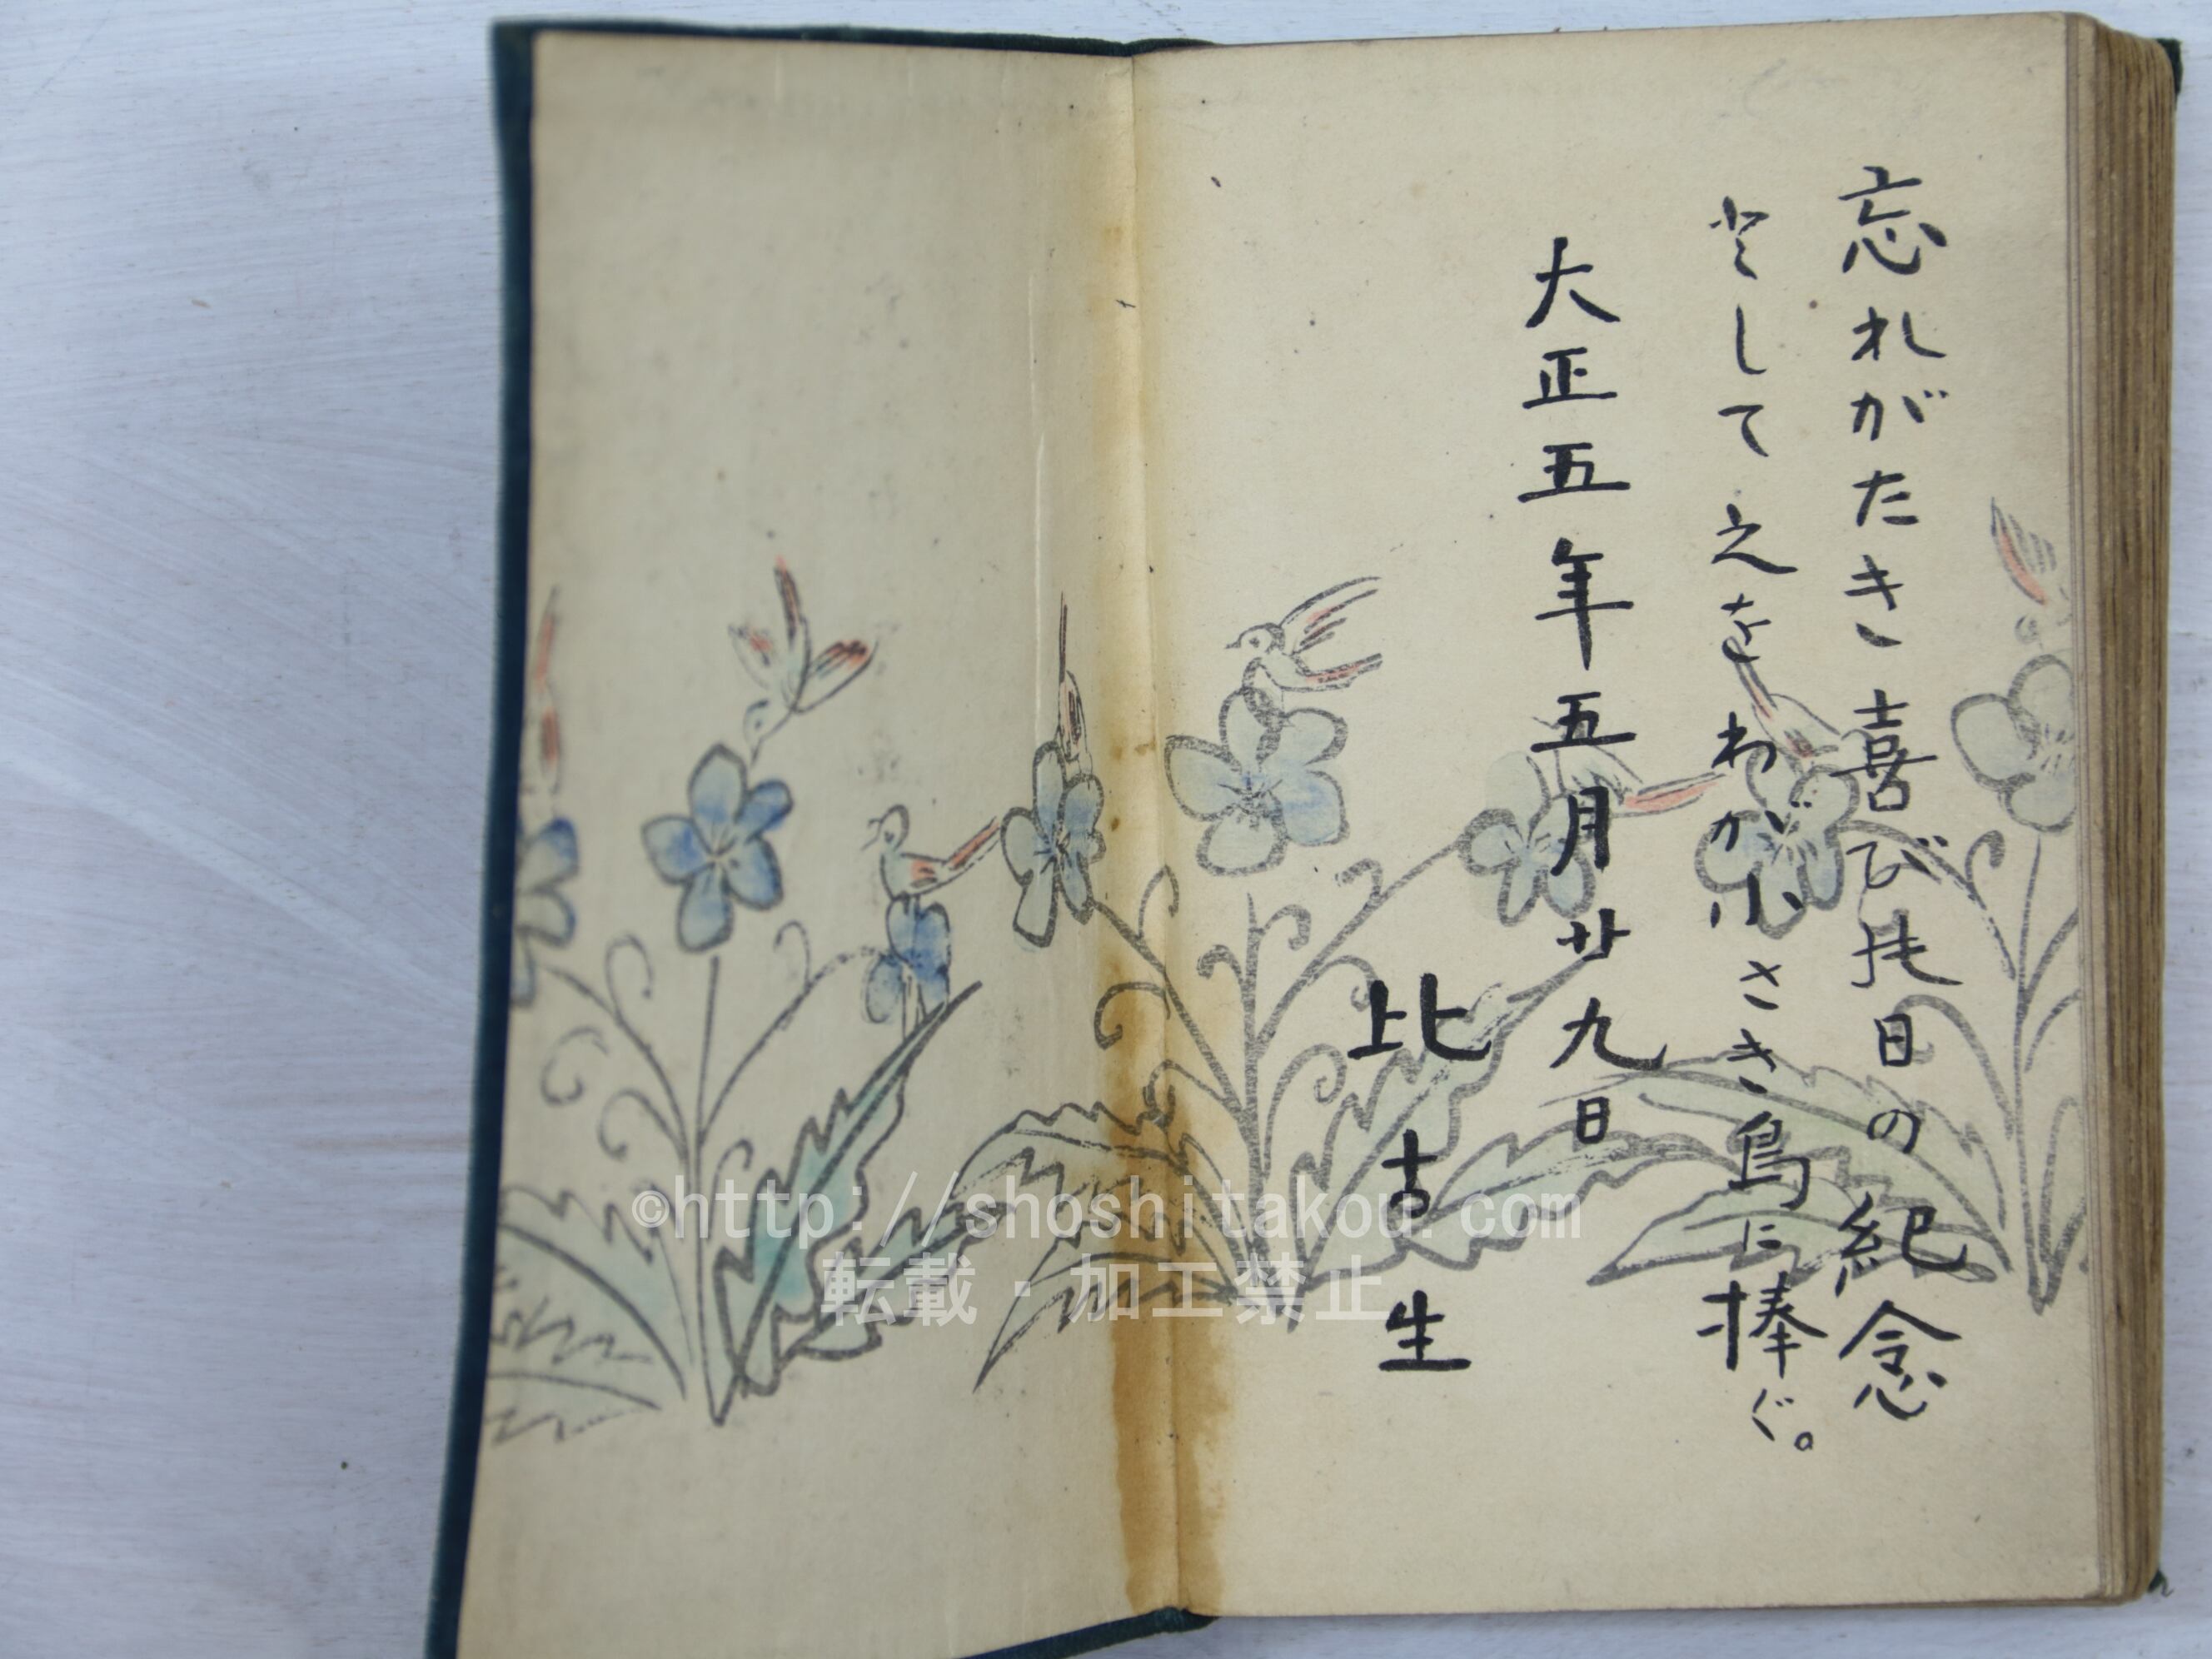 忘れがたき喜び日の紀念
としてこれをわが小さき鳥に捧ぐ。
大正五年五月廿九日
比古生
©http://shoshitakou.com
転載・加工禁止